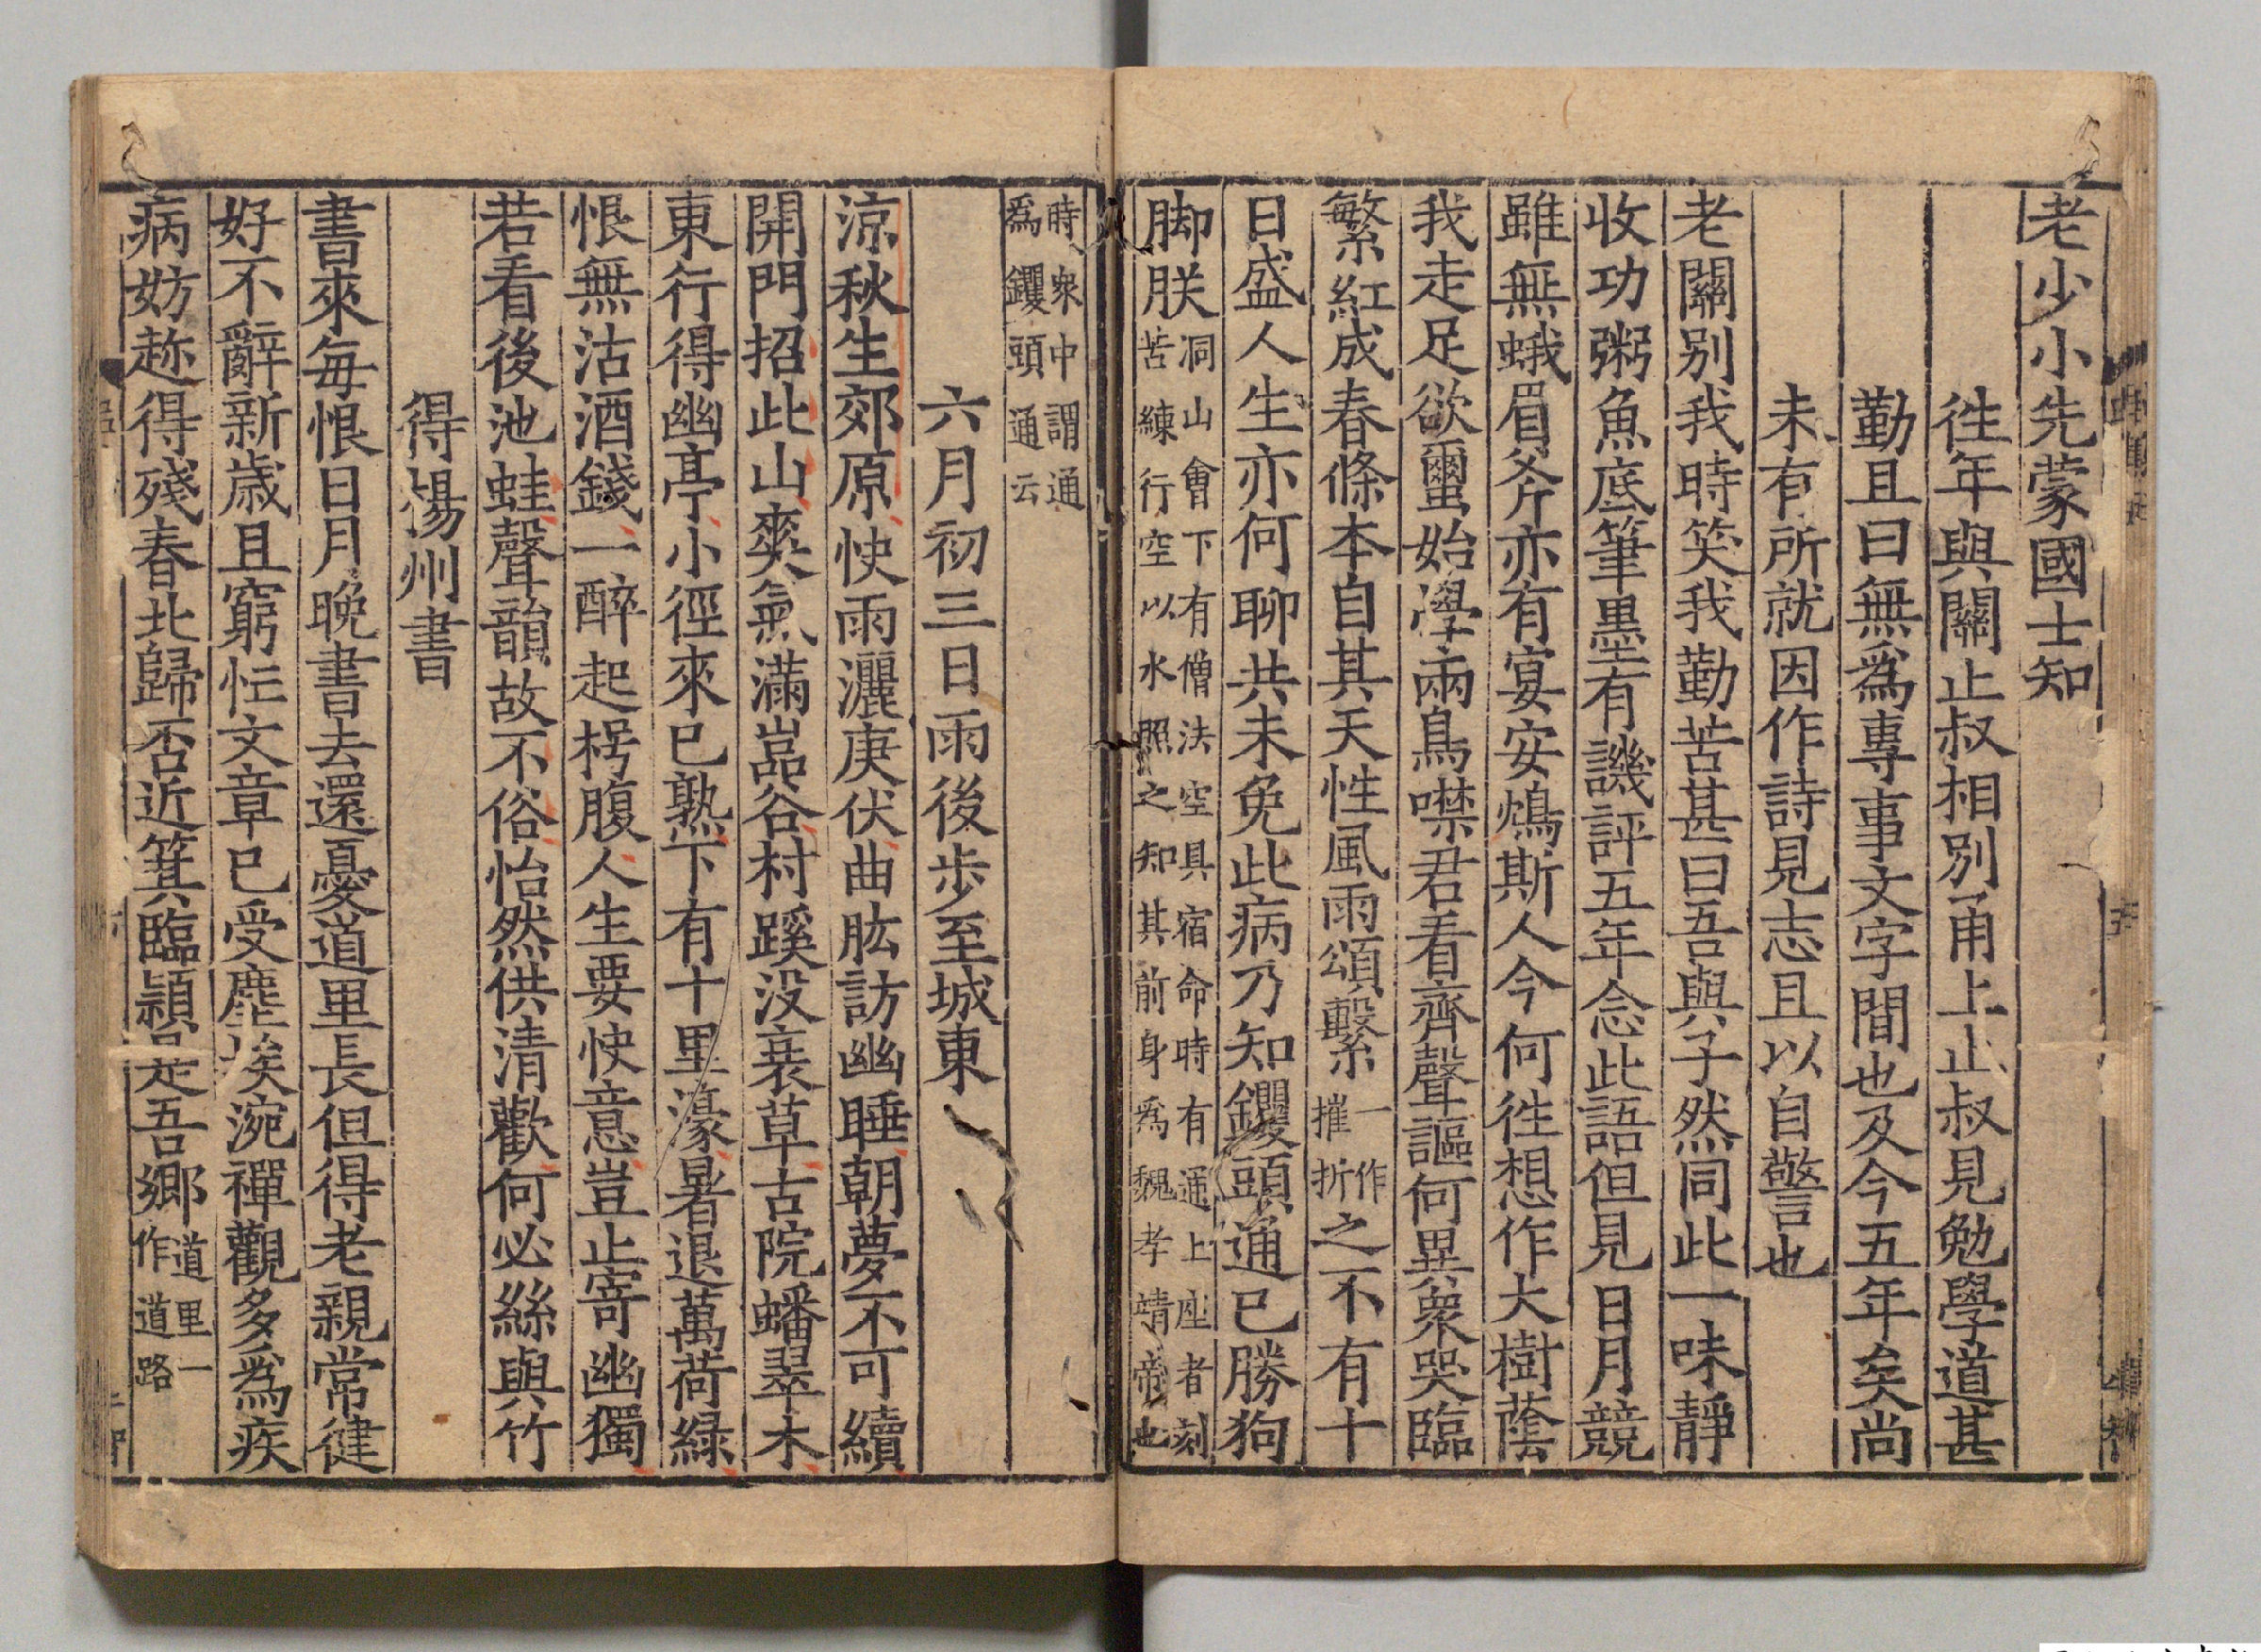 老少小先蒙國士知
徃年與關止叔相別甬上止叔見勉學道甚
勤且曰無爲專事文字間也及今五年矣尚
未有所就因作詩見志且以自警也
老關别我時笑我勤苦甚曰吾與子然同此一味靜
收功粥魚底筆墨有譏評五年念此語但見日月競
雖無蛾眉斧亦有宴安鴆斯人今何徃想作大樹蔭
我走足欲蠒始學兩鳥噤君看齊聲謳何異衆哭臨
繁紅成春條本自其天性風雨頌繫一作摧折之不有十
日盛人生亦何聊共未免此病乃知钁頭通已勝狗
脚朕洞山會下有僧法空具宿命時有通上座者刻苦練行空以水照之知其前身爲魏孝靖帝也
時衆中謂通爲钁頭通云
六月初三日雨後步至城東
涼秋生郊原快雨灑庚伏曲肱訪幽睡朝夢不可續
開門招此山爽氣滿嵓谷村蹊没衰草古院蟠翠木
東行得幽亭小徑來已熟下有十里濠暑退萬荷緑
恨無沽酒錢一醉起枵腹人生要快意豈止寄幽獨
若看後池蛙聲韻故不俗怡然供清歡何必絲與竹
得揚州書
書來每恨日月晚書去還憂道里長但得老親常健
好不辭新歳且窮忙文章已受塵埃涴禪觀多爲疾
病妨趂得殘春北歸否近箕臨潁是吾鄉道里一作道路